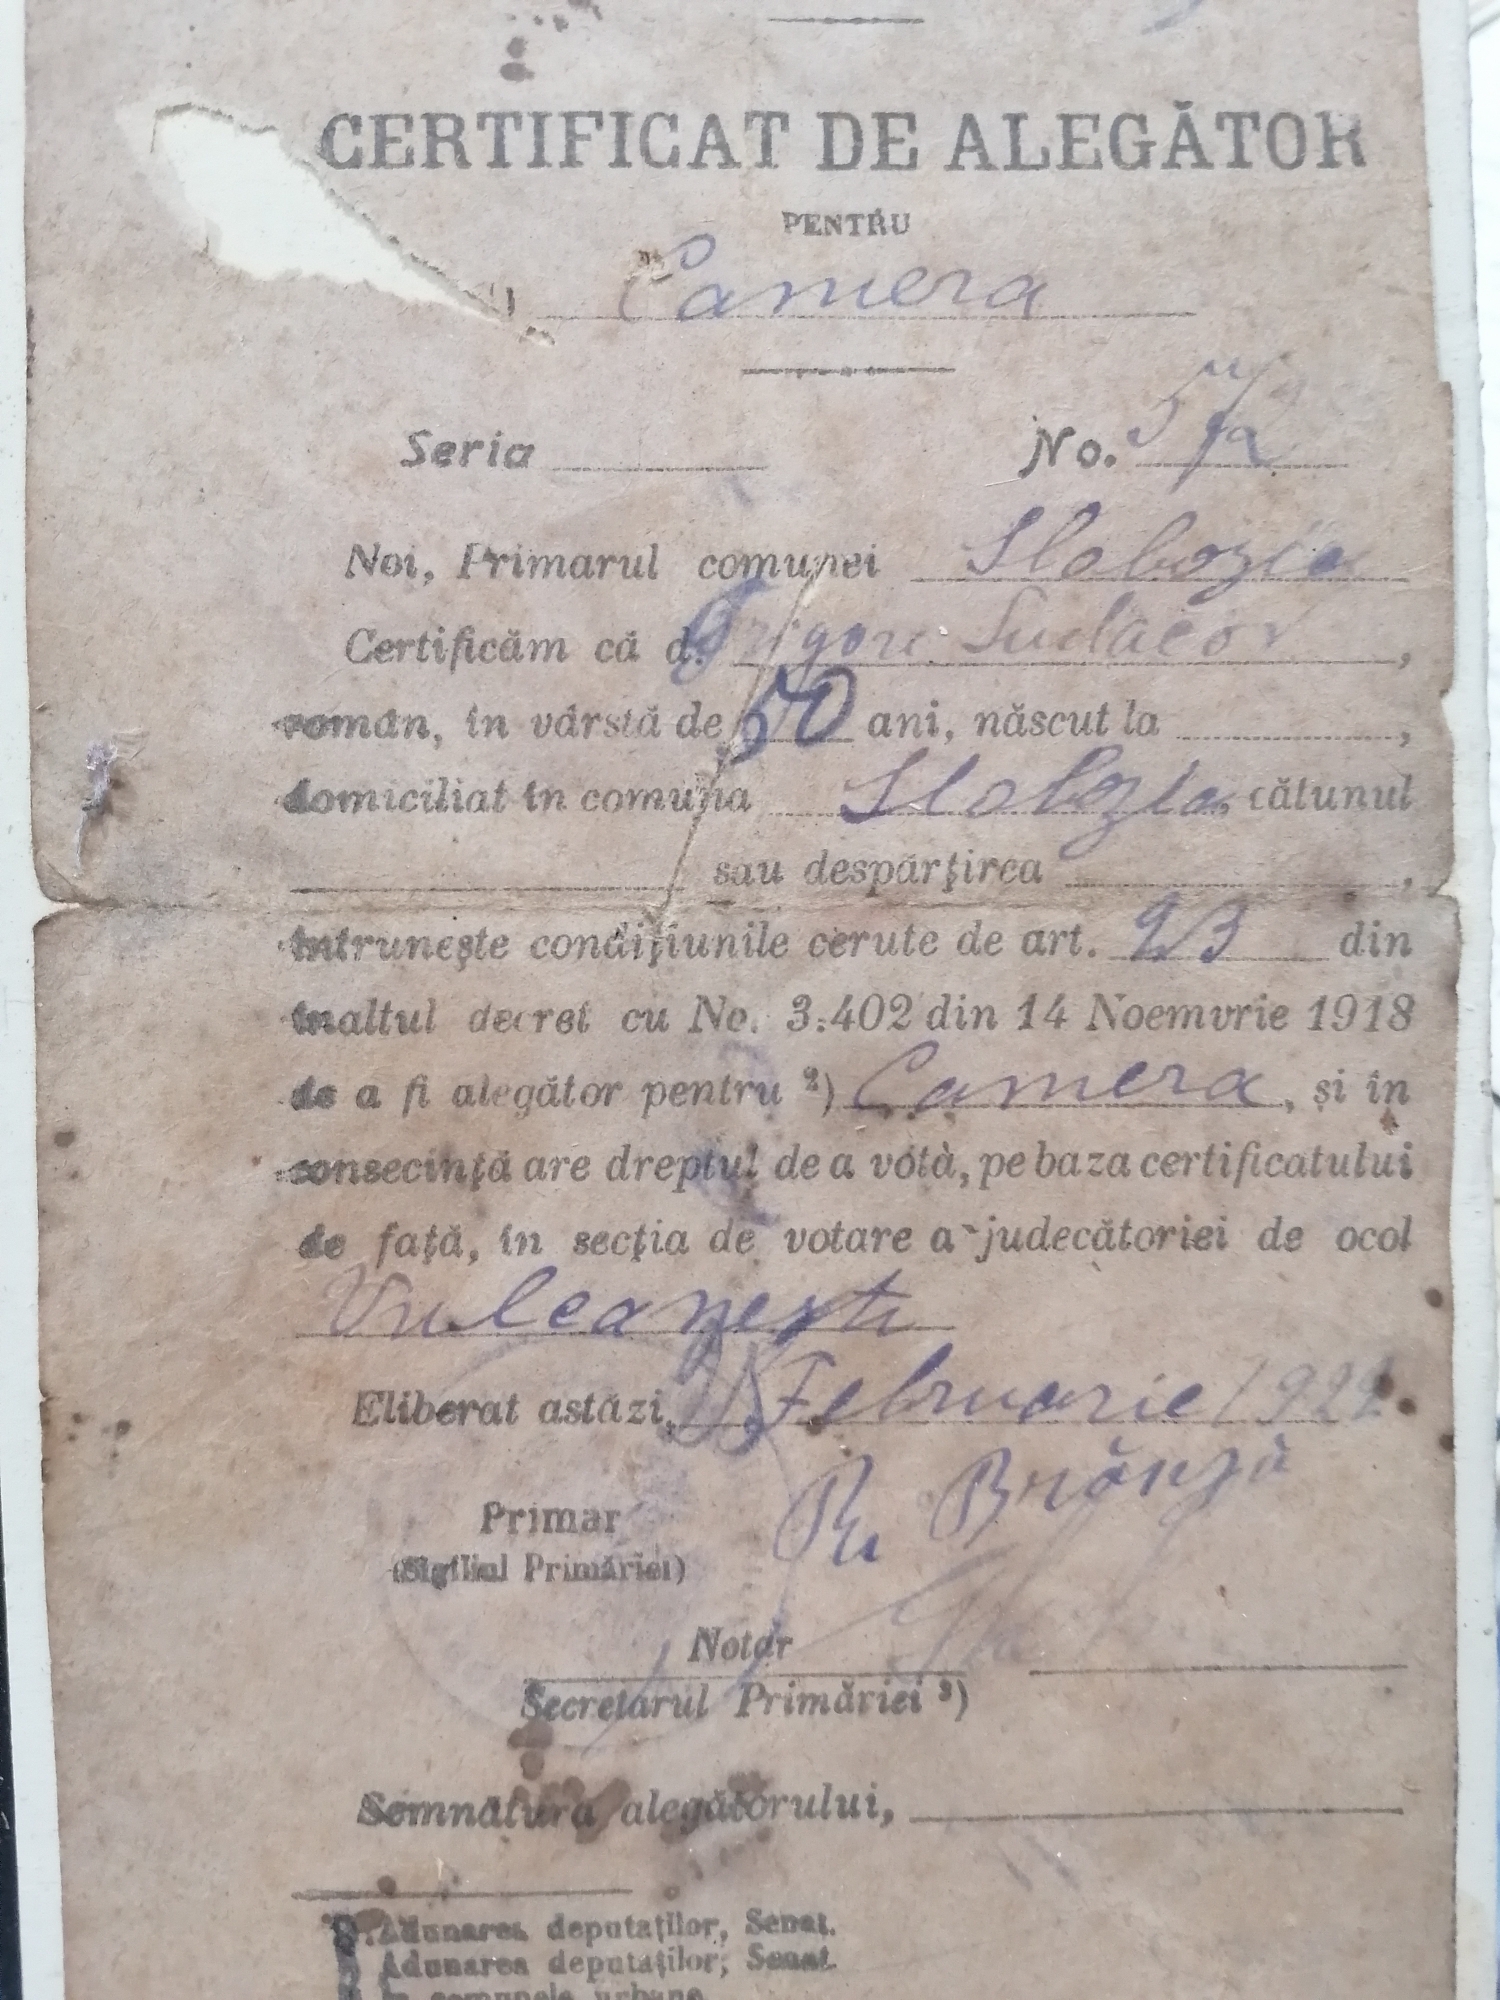 CERTIFICAT DE ALEGĂTOR
PENTRU
Camera
Seria No. 572
Noi, Primarul comunei Slobozia
Certificăm că d. Grigore Sudacov,
român, în vârstă de 50 ani, născut la ,
domiciliat în comuna Slobozia, cătunul
sau despărţirea ,
întruneşte condiţiunile cerute de art. 23 din
înaltul decret cu No. 3.402 din 14 Noemvrie 1918
de a fi alegător pentru ²) Camera, şi în
consecinţă are dreptul de a votà, pe baza certificatului
de faţă, în secţia de votare a judecătoriei de ocol
Vulcanesti
Eliberat astăzi, Februarie 1922
Primar Brânză
(Sigiliul Primăriei)
Notar
Secretarul Primăriei ³)
Semnătura alegătorului,
Adunarea deputaţilor, Senat.
Adunarea deputaţilor, Senat.
comunele urbane